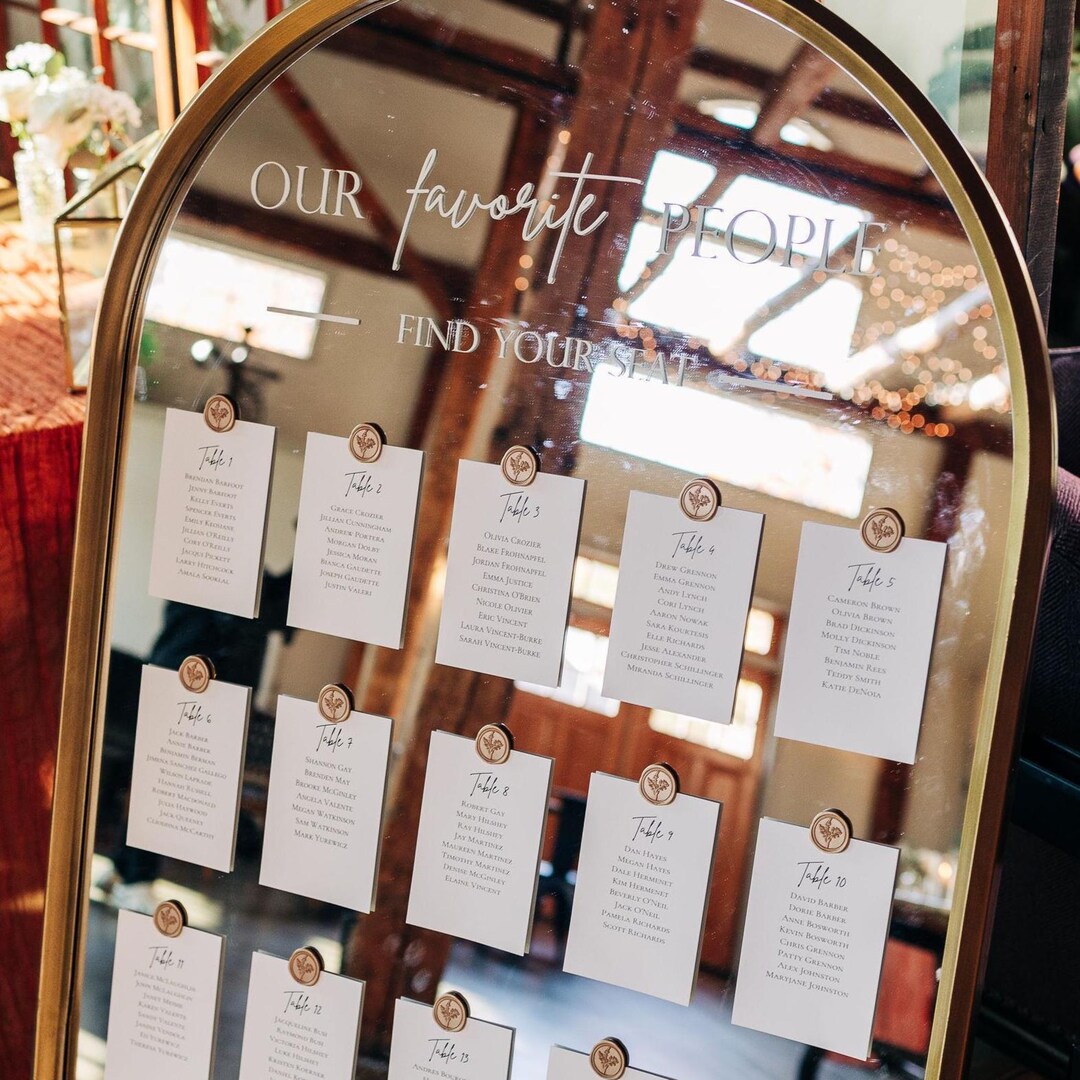 OUR favorite PEOPLE
FIND YOUR SEAT
Table 1
Brendan Barfoot
Jenny Barfoot
Kelly Everts
Spencer Everts
Emily Keohane
Jillian O'Reilly
Cory O'Reilly
Jacqui Pickett
Larry Hitchcock
Amala Soorlal
Table 2
Grace Crozier
Jillian Cunningham
Andrew Portera
Morgan Dolby
Jessica Moran
Bianca Gaudette
Joseph Gaudette
Justin Valeri
Table 3
Olivia Crozier
Blake Frohnapfel
Jordan Frohnapfel
Emma Justice
Christina O'Brien
Nicole Olivier
Eric Vincent
Laura Vincent-Burke
Sarah Vincent-Burke
Table 4
Drew Grennon
Emma Grennon
Andy Lynch
Cori Lynch
Aaron Novak
Sara Kourtesis
Elle Richards
Jesse Alexander
Christopher Schillinger
Miranda Schillinger
Table 5
Cameron Brown
Olivia Brown
Brad Dickinson
Molly Dickinson
Tim Noble
Benjamin Rees
Teddy Smith
Katie DeNoia
Table 6
Jack Barber
Annie Barber
Benjamin Berson
Jimena Sanchez Gallego
Wilson LaPrade
Hannah Russell
Robert MacDonald
Julia Haywood
Jack Queeney
Clodhna McCarthy
Table 7
Shannon Gay
Brenden May
Brooke McGinley
Angela Valente
Megan Watkinson
Sam Watkinson
Mark Yurewicz
Table 8
Robert Gay
Mary Hilshey
Ray Hilshey
Jay Martinez
Maureen Martinez
Timothy Martinez
Denise McGinley
Elaine Vincent
Table 9
Dan Hayes
Megan Hayes
Dale Hermenet
Kim Hermenet
Beverly O'Neil
Jack O'Neil
Pamela Richards
Scott Richards
Table 10
David Barber
Dorie Barber
Anne Bosworth
Kevin Bosworth
Chris Grennon
Patty Grennon
Alex Johnston
MaryJane Johnston
Table 11
Janice McLaughlin
John McLaughlin
Karen Valente
Sandy Valente
Ed Yurewicz
Theresa Yurewicz
Table 12
Jacqueline Busi
Raymond Busi
Victoria Hilshey
Luke Hilshey
Table 13